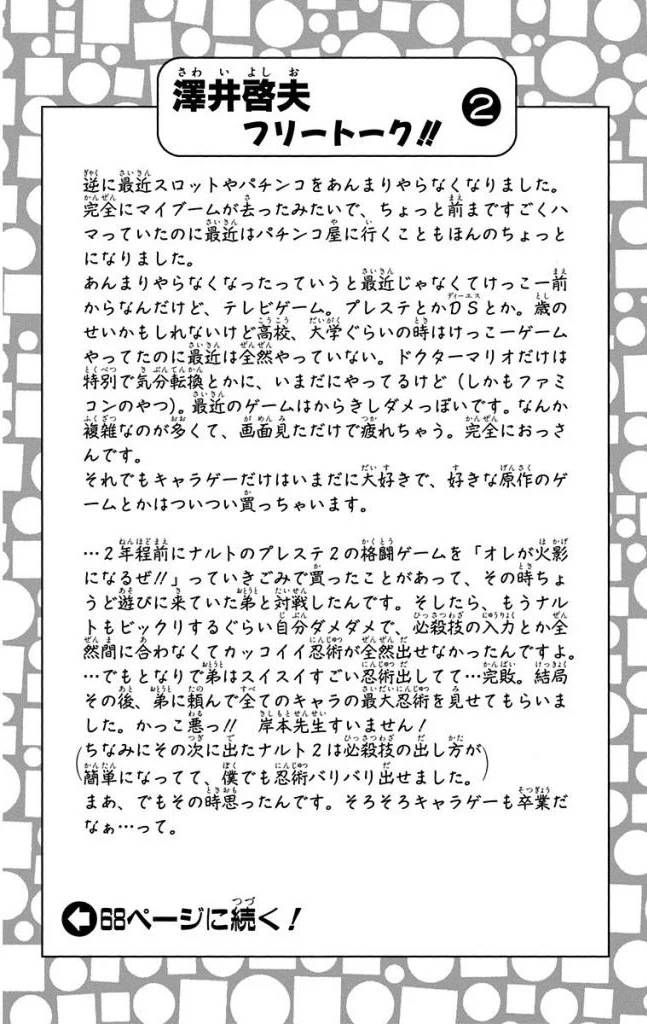 澤井啓夫
フリートーク!!
②
逆に最近スロットやパチンコをあんまりやらなくなりました。
完全にマイブームが去ったみたいで、ちょっと前まですごくハ
マっていたのに最近はパチンコ屋に行くこともほんのちょっと
になりました。
あんまりやらなくなったっていうと最近じゃなくてけっこー前
からなんだけど、テレビゲーム。プレステとかDSとか。歳の
せいかもしれないけど高校、大学ぐらいの時はけっこーゲーム
やってたのに最近は全然やっていない。ドクターマリオだけは
特別で気分転換とかに、いまだにやってるけど（しかもファミ
コンのやつ）。最近のゲームはからきしダメっぽいです。なんか
複雑なのが多くて、画面見ただけで疲れちゃう。完全におっさ
んです。
それでもキャラゲーだけはいまだに大好きで、好きな原作のゲ
ームとかはついつい買っちゃいます。
…2年程前にナルトのプレステ2の格闘ゲームを「オレが火影
になるぜ!!」っていきごみで買ったことがあって、その時ちょ
うど遊びに来ていた弟と対戦したんです。そしたら、もうナル
トもビックリするぐらい自分ダメダメで、必殺技の入力とか全
然間に合わなくてカッコイイ忍術が全然出せなかったんですよ。
…でもとなりで弟はスイスイすごい忍術出してて…完敗。結局
その後、弟に頼んで全てのキャラの最大忍術を見せてもらいま
した。かっこ悪っ!! 岸本先生すいません!
（ちなみにその次に出たナルト2は必殺技の出し方が
簡単になってて、僕でも忍術バリバリ出せました。）
まあ、でもその時思ったんです。そろそろキャラゲーも卒業だ
なぁ…って。
68ページに続く!